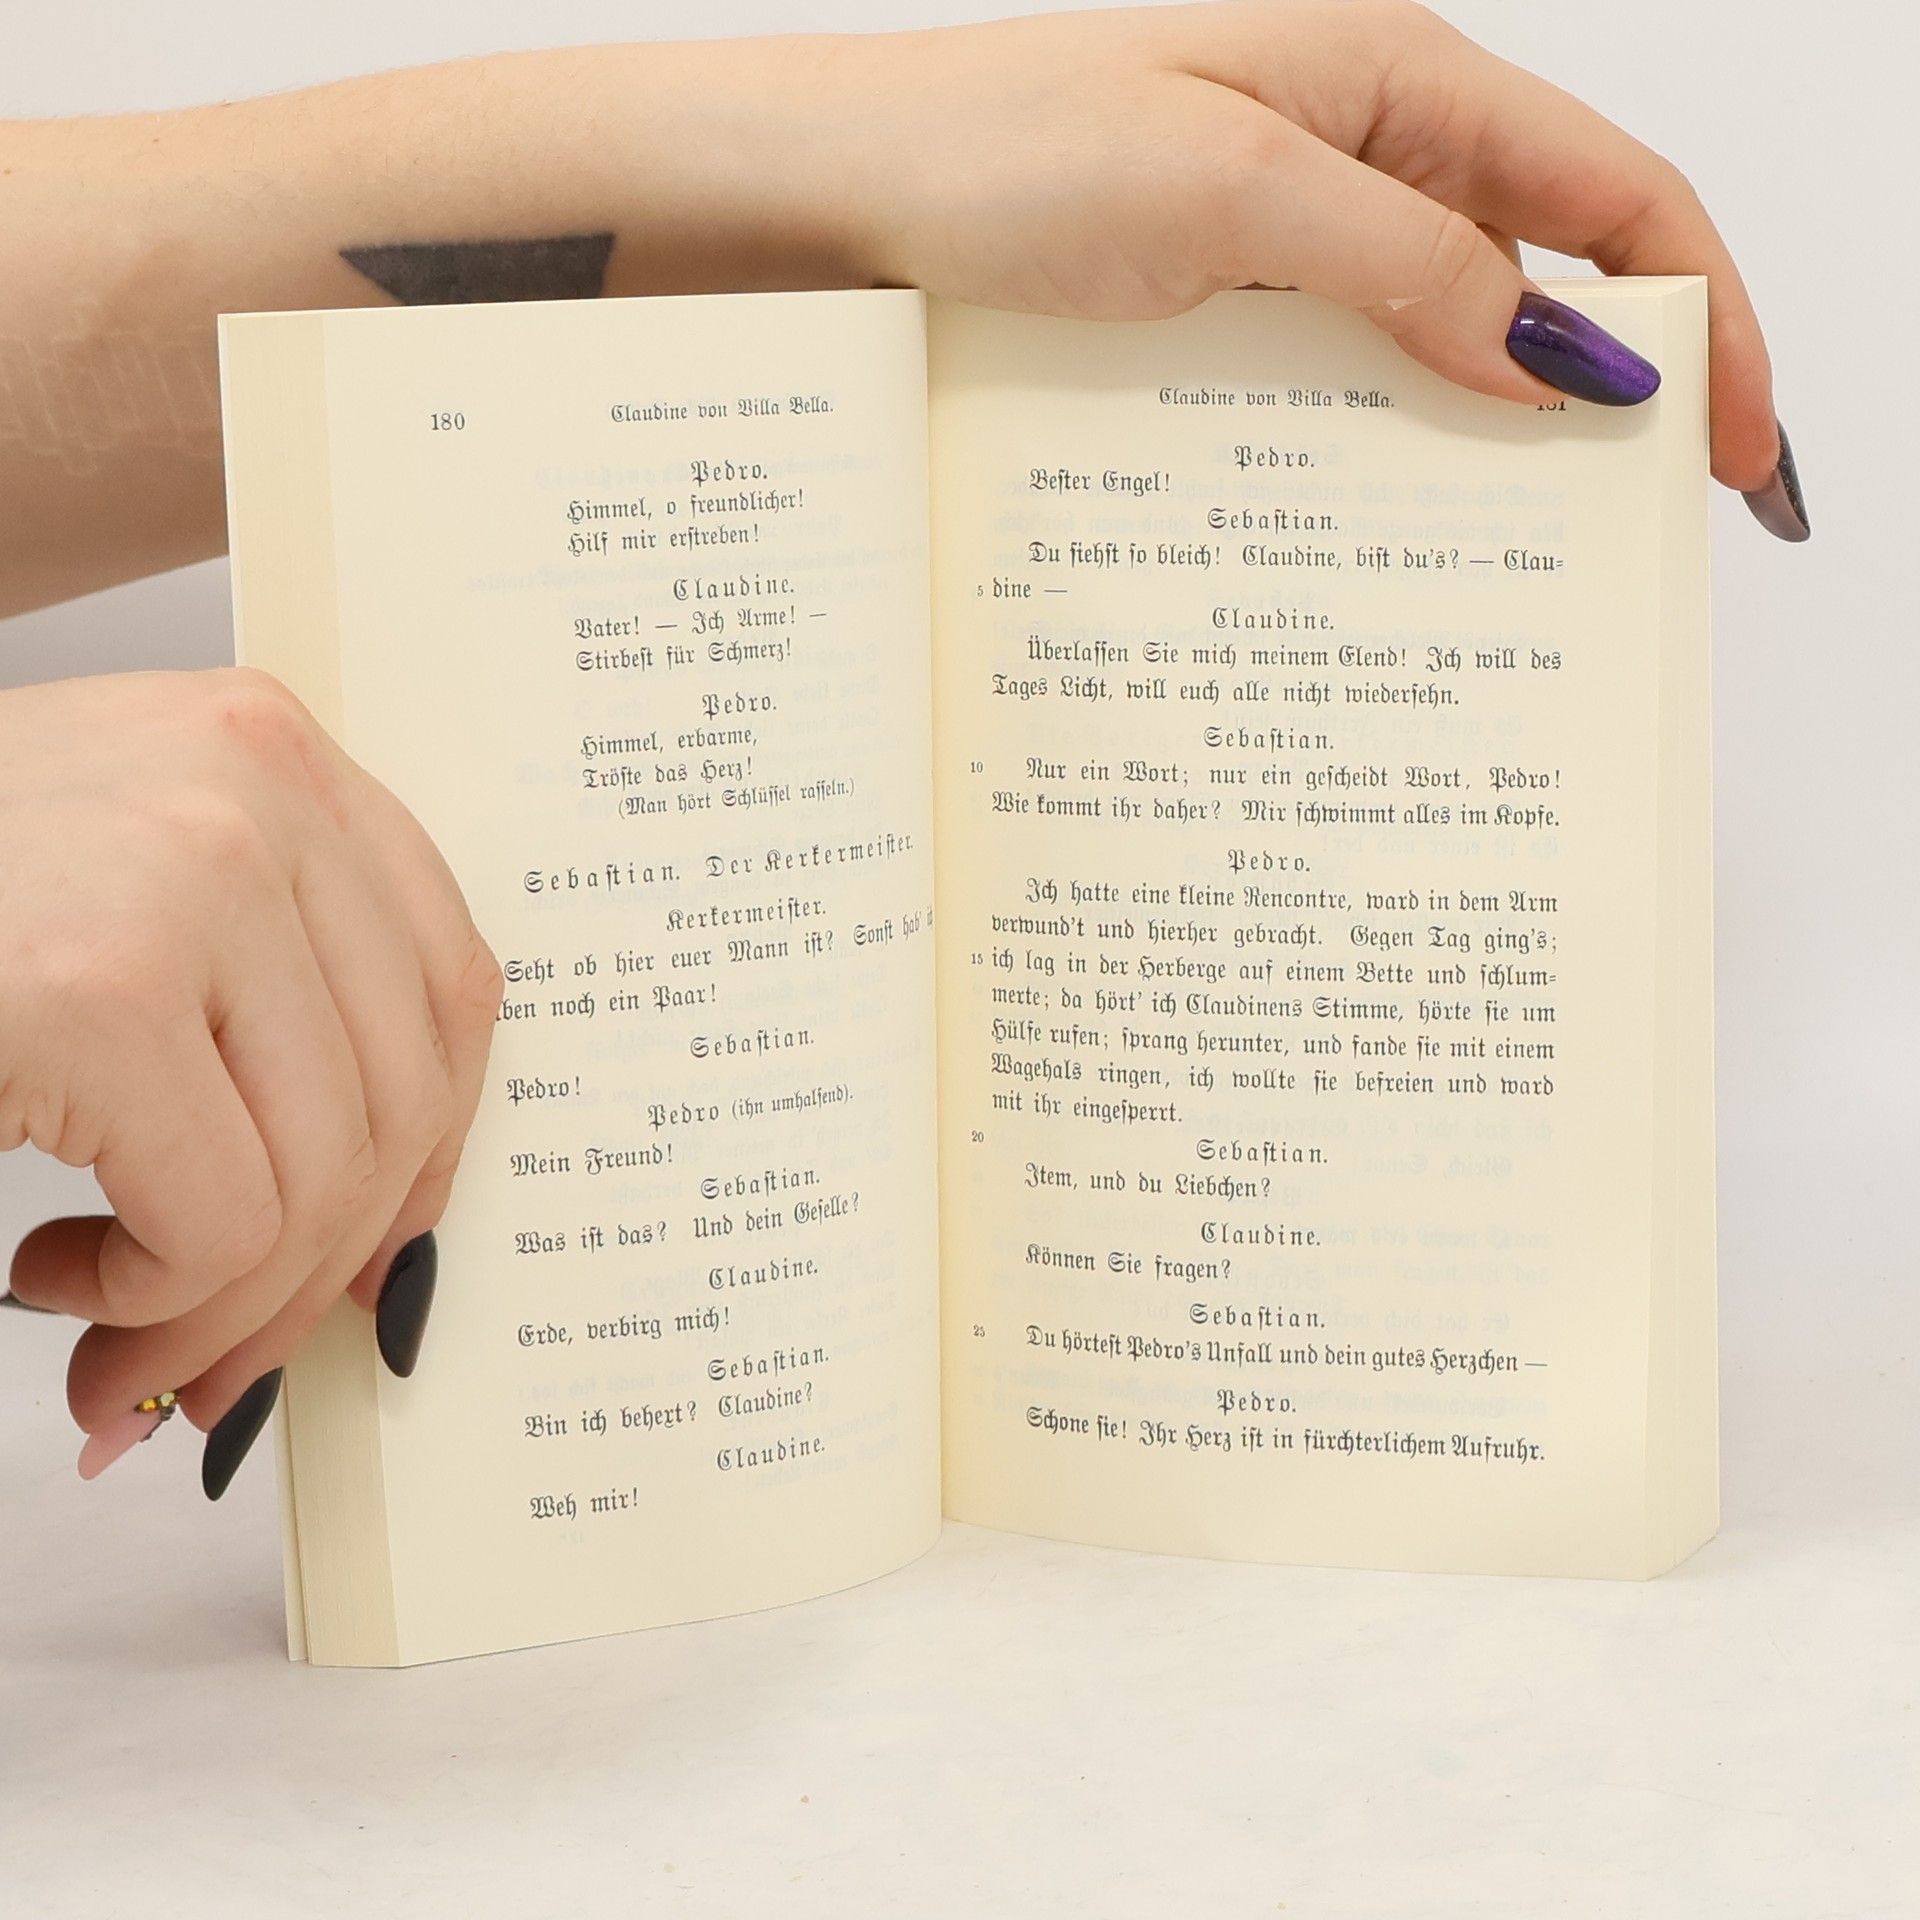 180
Claudine von Villa Bella.
Pedro.
Himmel, o freundlicher!
Hilf mir erstreben!
Claudine.
Vater! — Ich Arme! —
Stirbest für Schmerz!
Pedro.
Himmel, erbarme,
Tröste das Herz!
(Man hört Schlüssel rasseln.)
Sebastian. Der Kerkermeister.
Kerkermeister.
Seht ob hier euer Mann ist? Sonst hab'
noch ein Paar!
Sebastian.
Pedro!
Pedro (ihn umhalsend).
Mein Freund!
Sebastian.
Was ist das? Und dein Geselle?
Claudine.
Erde, verbirg mich!
Sebastian.
Bin ich behext? Claudine?
Claudine.
Weh mir!
Claudine von Villa Bella.
Pedro.
Bester Engel!
Sebastian.
Du siehst so bleich! Claudine, bist du's? — Clau-
5 dine —
Claudine.
Überlassen Sie mich meinem Elend! Ich will des
Tages Licht, will euch alle nicht wiedersehn.
Sebastian.
10 Nur ein Wort; nur ein gescheidt Wort, Pedro!
Wie kommt ihr daher? Mir schwimmt alles im Kopfe.
Pedro.
Ich hatte eine kleine Rencontre, ward in dem Arm
verwund't und hierher gebracht. Gegen Tag ging's;
15 ich lag in der Herberge auf einem Bette und schlum-
merte; da hört' ich Claudinens Stimme, hörte sie um
Hülfe rufen; sprang herunter, und fande sie mit einem
Wagehals ringen, ich wollte sie befreien und ward
mit ihr eingesperrt.
20 Sebastian.
Item, und du Liebchen?
Claudine.
Können Sie fragen?
Sebastian.
25 Du hörtest Pedro's Unfall und dein gutes Herzchen —
Pedro.
Schone sie! Ihr Herz ist in fürchterlichem Aufruhr.